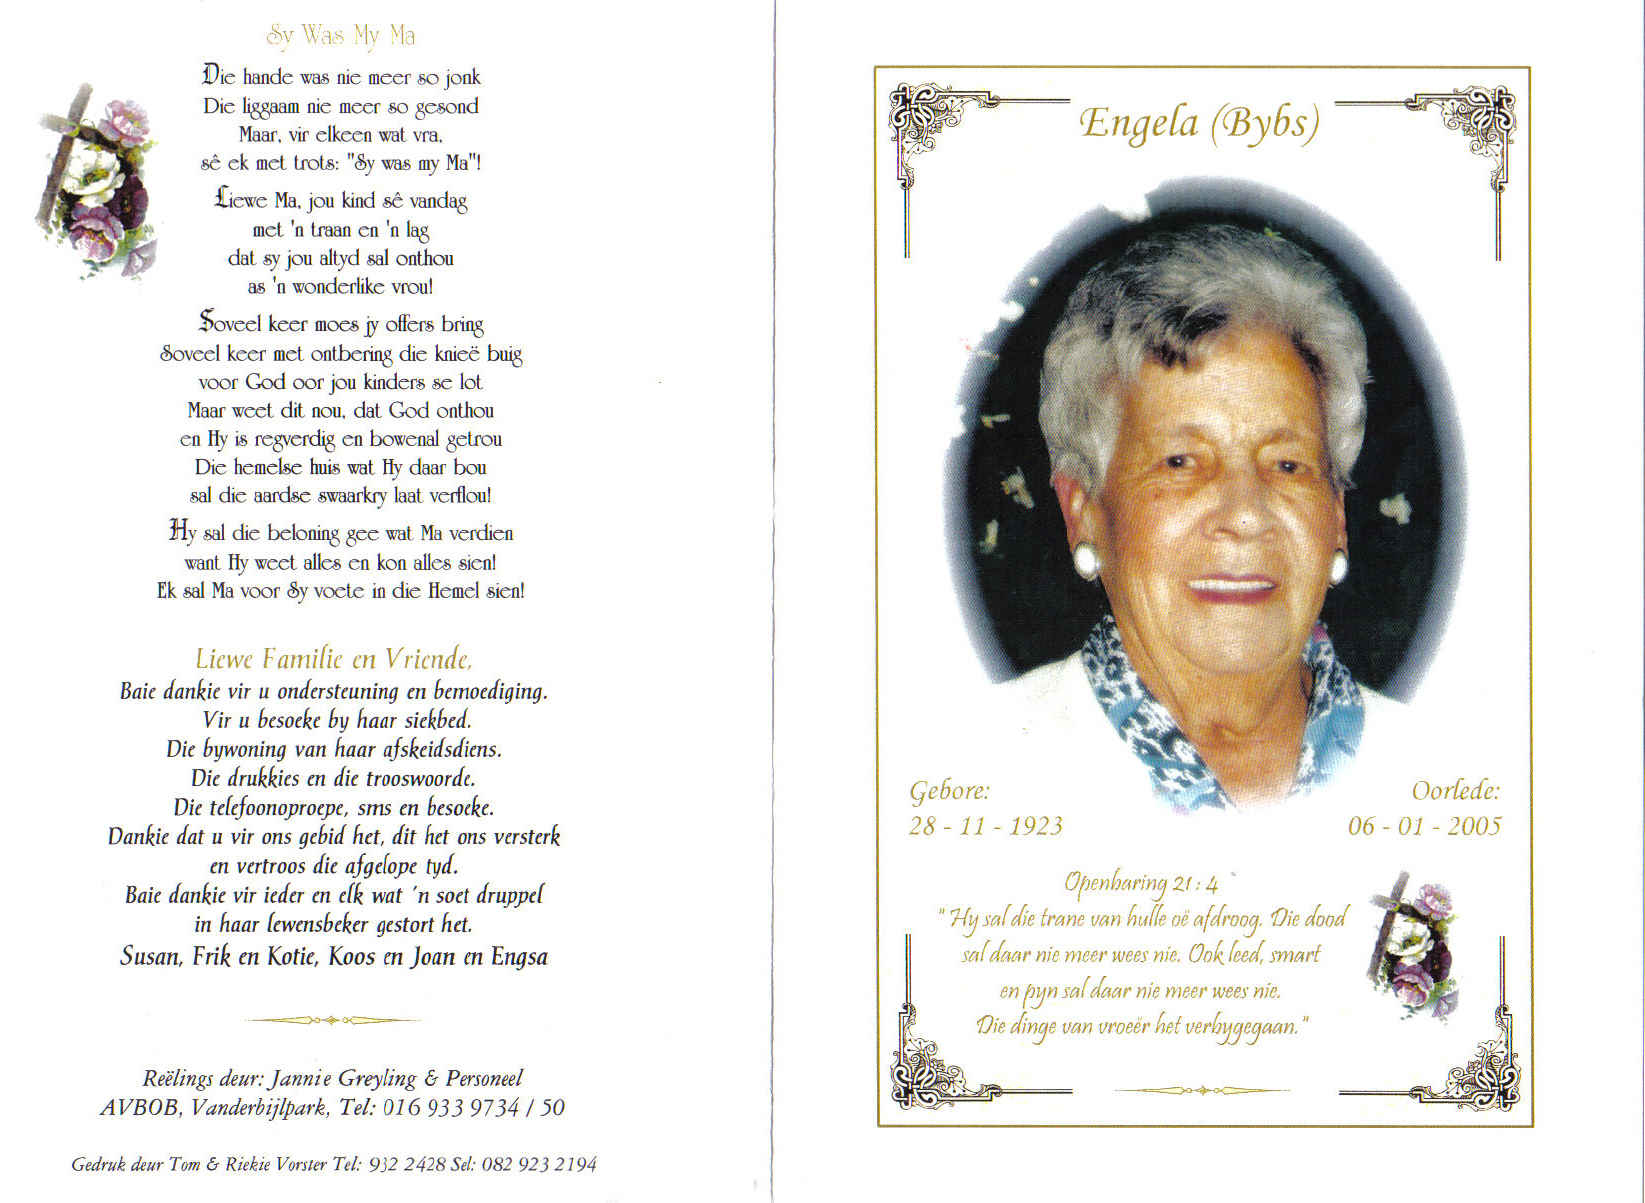 Sy Was My Ma
Die hande was nie meer so jonk
Die liggaam nie meer so gesond
Maar, vir elkeen wat vra,
sê ek met trots: "Sy was my Ma"!
Liewe Ma, jou kind sê vandag
met 'n traan en 'n lag
dat sy jou altyd sal onthou
as 'n wonderlike vrou!
Soveel keer moes jy offers bring
Soveel keer met ontbering die knieë buig
voor God oor jou kinders se lot
Maar weet dit nou, dat God onthou
en Hy is regverdig en bowenal getrou
Die hemelse huis wat Hy daar bou
sal die aardse swaarkry laat verflou!
Hy sal die beloning gee wat Ma verdien
want Hy weet alles en kon alles sien!
Ek sal Ma voor Sy voete in die Hemel sien!
Liewe Familie en Vriende,
Baie dankie vir u ondersteuning en bemoediging.
Vir u besoeke by haar siekbed.
Die bywoning van haar afskeidsdiens.
Die drukkies en die trooswoorde.
Die telefoonoproepe, sms en besoeke.
Dankie dat u vir ons gebid het, dit het ons versterk
en vertroos die afgelope tyd.
Baie dankie vir ieder en elk wat 'n soet druppel
in haar lewensbeker gestort het.
Susan, Frik en Kotie, Koos en Joan en Engsa
Reëlings deur: Jannie Greyling & Personeel
AVBOB, Vanderbijlpark, Tel: 016 933 9734 / 50
Gedruk deur Tom & Riekie Vorster Tel: 932 2428 Sel: 082 923 2194
Engela (Bybs)
Gebore:
28 - 11 - 1923
Oorlede:
06 - 01 - 2005
Openbaring 21 : 4
"Hy sal die trane van hulle oë afdroog. Die dood
sal daar nie meer wees nie. Ook leed, smart
en pyn sal daar nie meer wees nie.
Die dinge van vroeër het verbygegaan."